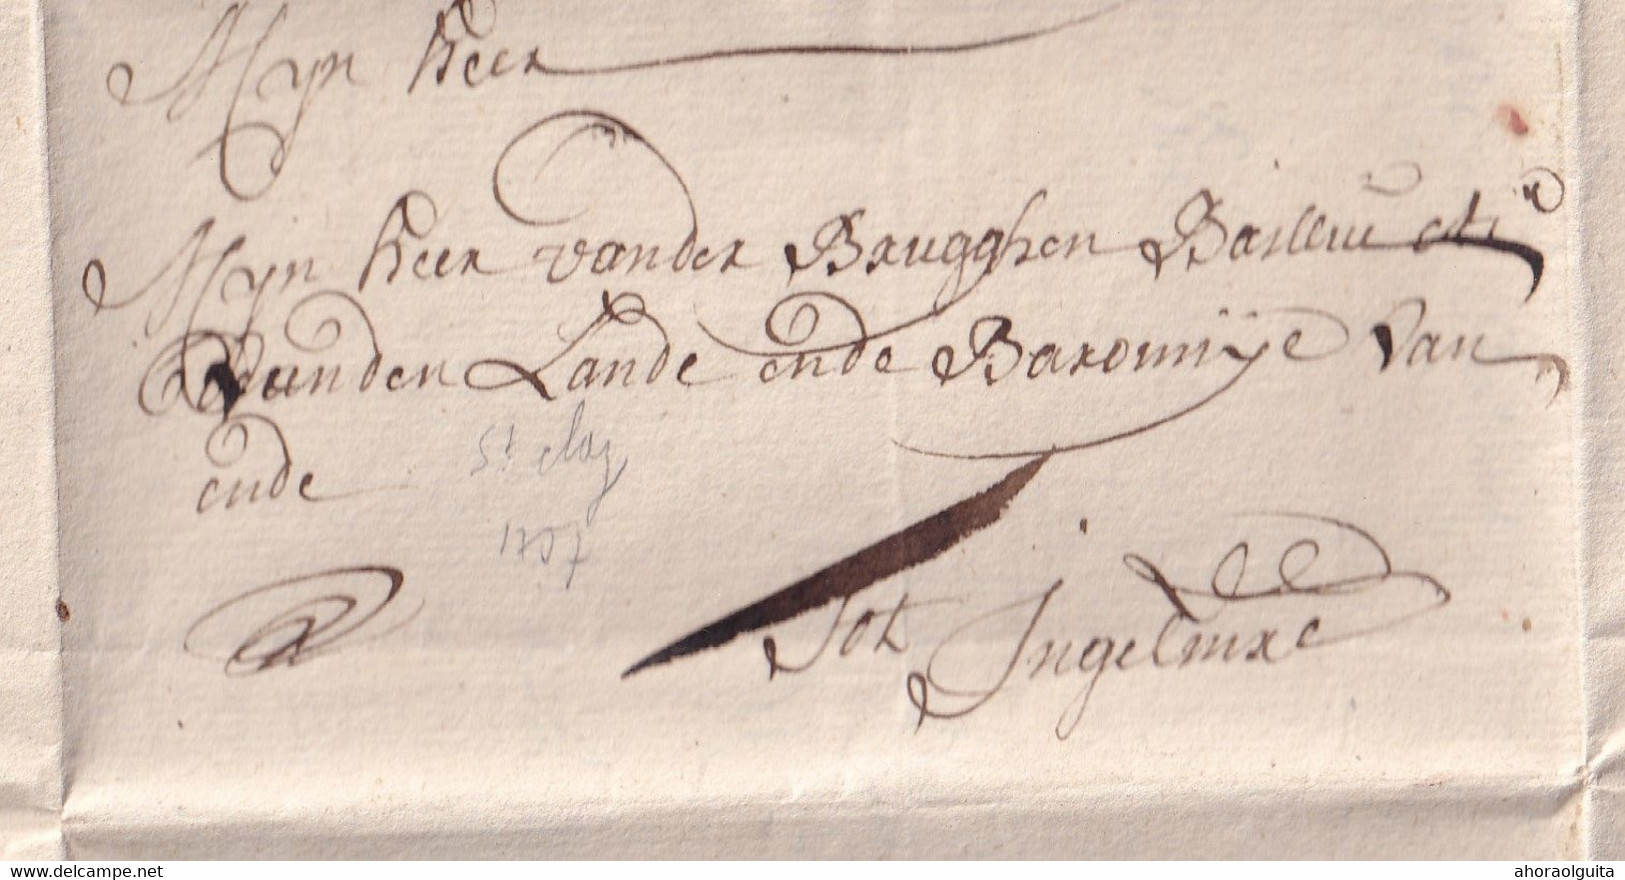 Mijn heer
Mijn heer vander Brugghen Bailliu ett.ª
Vanden Lande ende Baronnije van
ende
St eloy
1757
Tot Ingelmre
delcampe.net
ahoraolguita